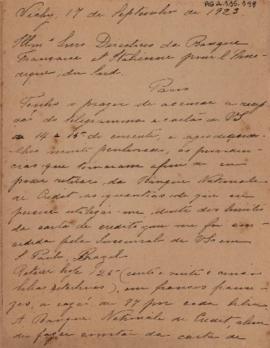 PGA.535.398
Vichy, 17 de Septembro de 1923
Illmos Snrs Directores da Banque
Française et Italienne pour l'Amé-
rique du Sud.
Paris
Tenho o prazer de accusar a recep-
ção do telegramma e cartão de VS
de 14 e 15 do corrente, e agradeço-
lhes muito penhorado, as providen-
cias que tomaram afim de eu
poder retirar da Banque Nationale
de Credit as quantias de que eu
precise dentro dos limites
da carta de credito que me foi con-
cedida pela Succursal de
S. Paulo, Brazil
Retirei hoje £ 125 (cento e vinte e cinco
libras esterlinas), em francos france-
zes, a razão de 77 por cada libra
A Banque Nationale de Credit, alem
de fazer constar da carta de